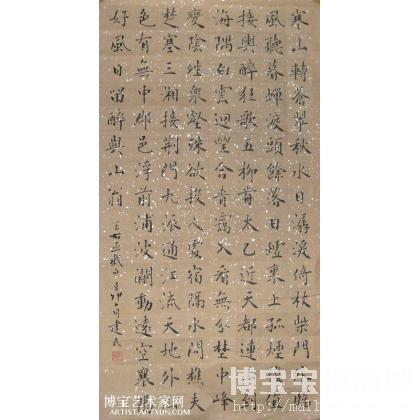 寒山轉蒼翠秋水日潺湲倚杖柴門外臨
風聽暮蟬渡頭餘落日墟裏上孤煙復值
接輿醉狂歌五柳前太乙近天都連山到
海隅白雲迴望合青靄入看無分埜中峰
變陰晴眾壑殊欲投人處宿隔水問樵夫
楚塞三湘接荊門九派通江流天地外山
色有無中郡邑浮前浦波瀾動遠空襄陽
好風日留醉與山翁
王右丞
建民
博宝艺术家网
ARTIST.ARTXUN.COM